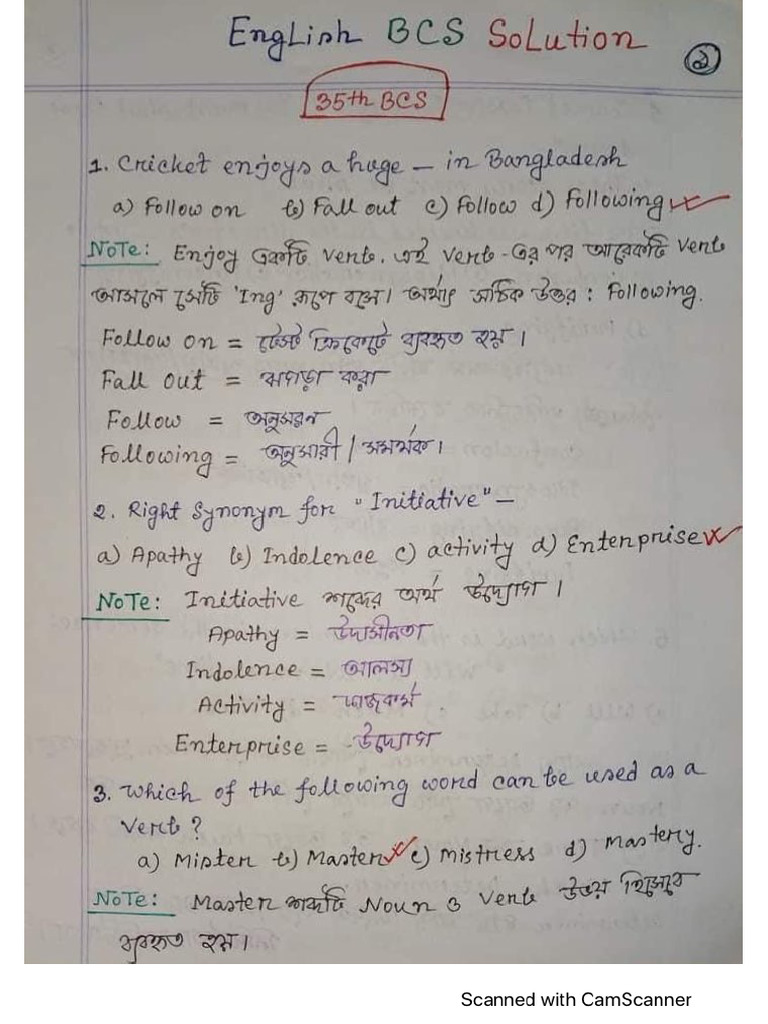 English BCS Solution
২
35th BCS
1. Cricket enjoys a huge – in Bangladesh
a) Follow on b) Fall out c) Follow d) Following
NOTE: Enjoy একটি verb. এই verb-এর পর আরেকটি verb
আসলে সেটি 'Ing' রূপে বসে। অর্থাৎ সঠিক উত্তর : Following.
Follow on = টেস্ট ক্রিকেটে ব্যবহৃত হয়।
Fall out = ঝগড়া করা
Follow = অনুসরন
Following = অনুসারী / সমর্থক।
2. Right Synonym for "Initiative" –
a) Apathy b) Indolence c) activity d) Enterprise
NOTE: Initiative শব্দের অর্থ উদ্যোগ।
Apathy = উদাসীনতা
Indolence = আলস্য
Activity = কাজকর্ম
Enterprise = উদ্যোগ
3. Which of the following word can be used as a
verb?
a) Mister b) Master c) Mistress d) Mastery.
NOTE: Master শব্দটি Noun ও Verb উভয় হিসেবে
ব্যবহৃত হয়।
Scanned with CamScanner